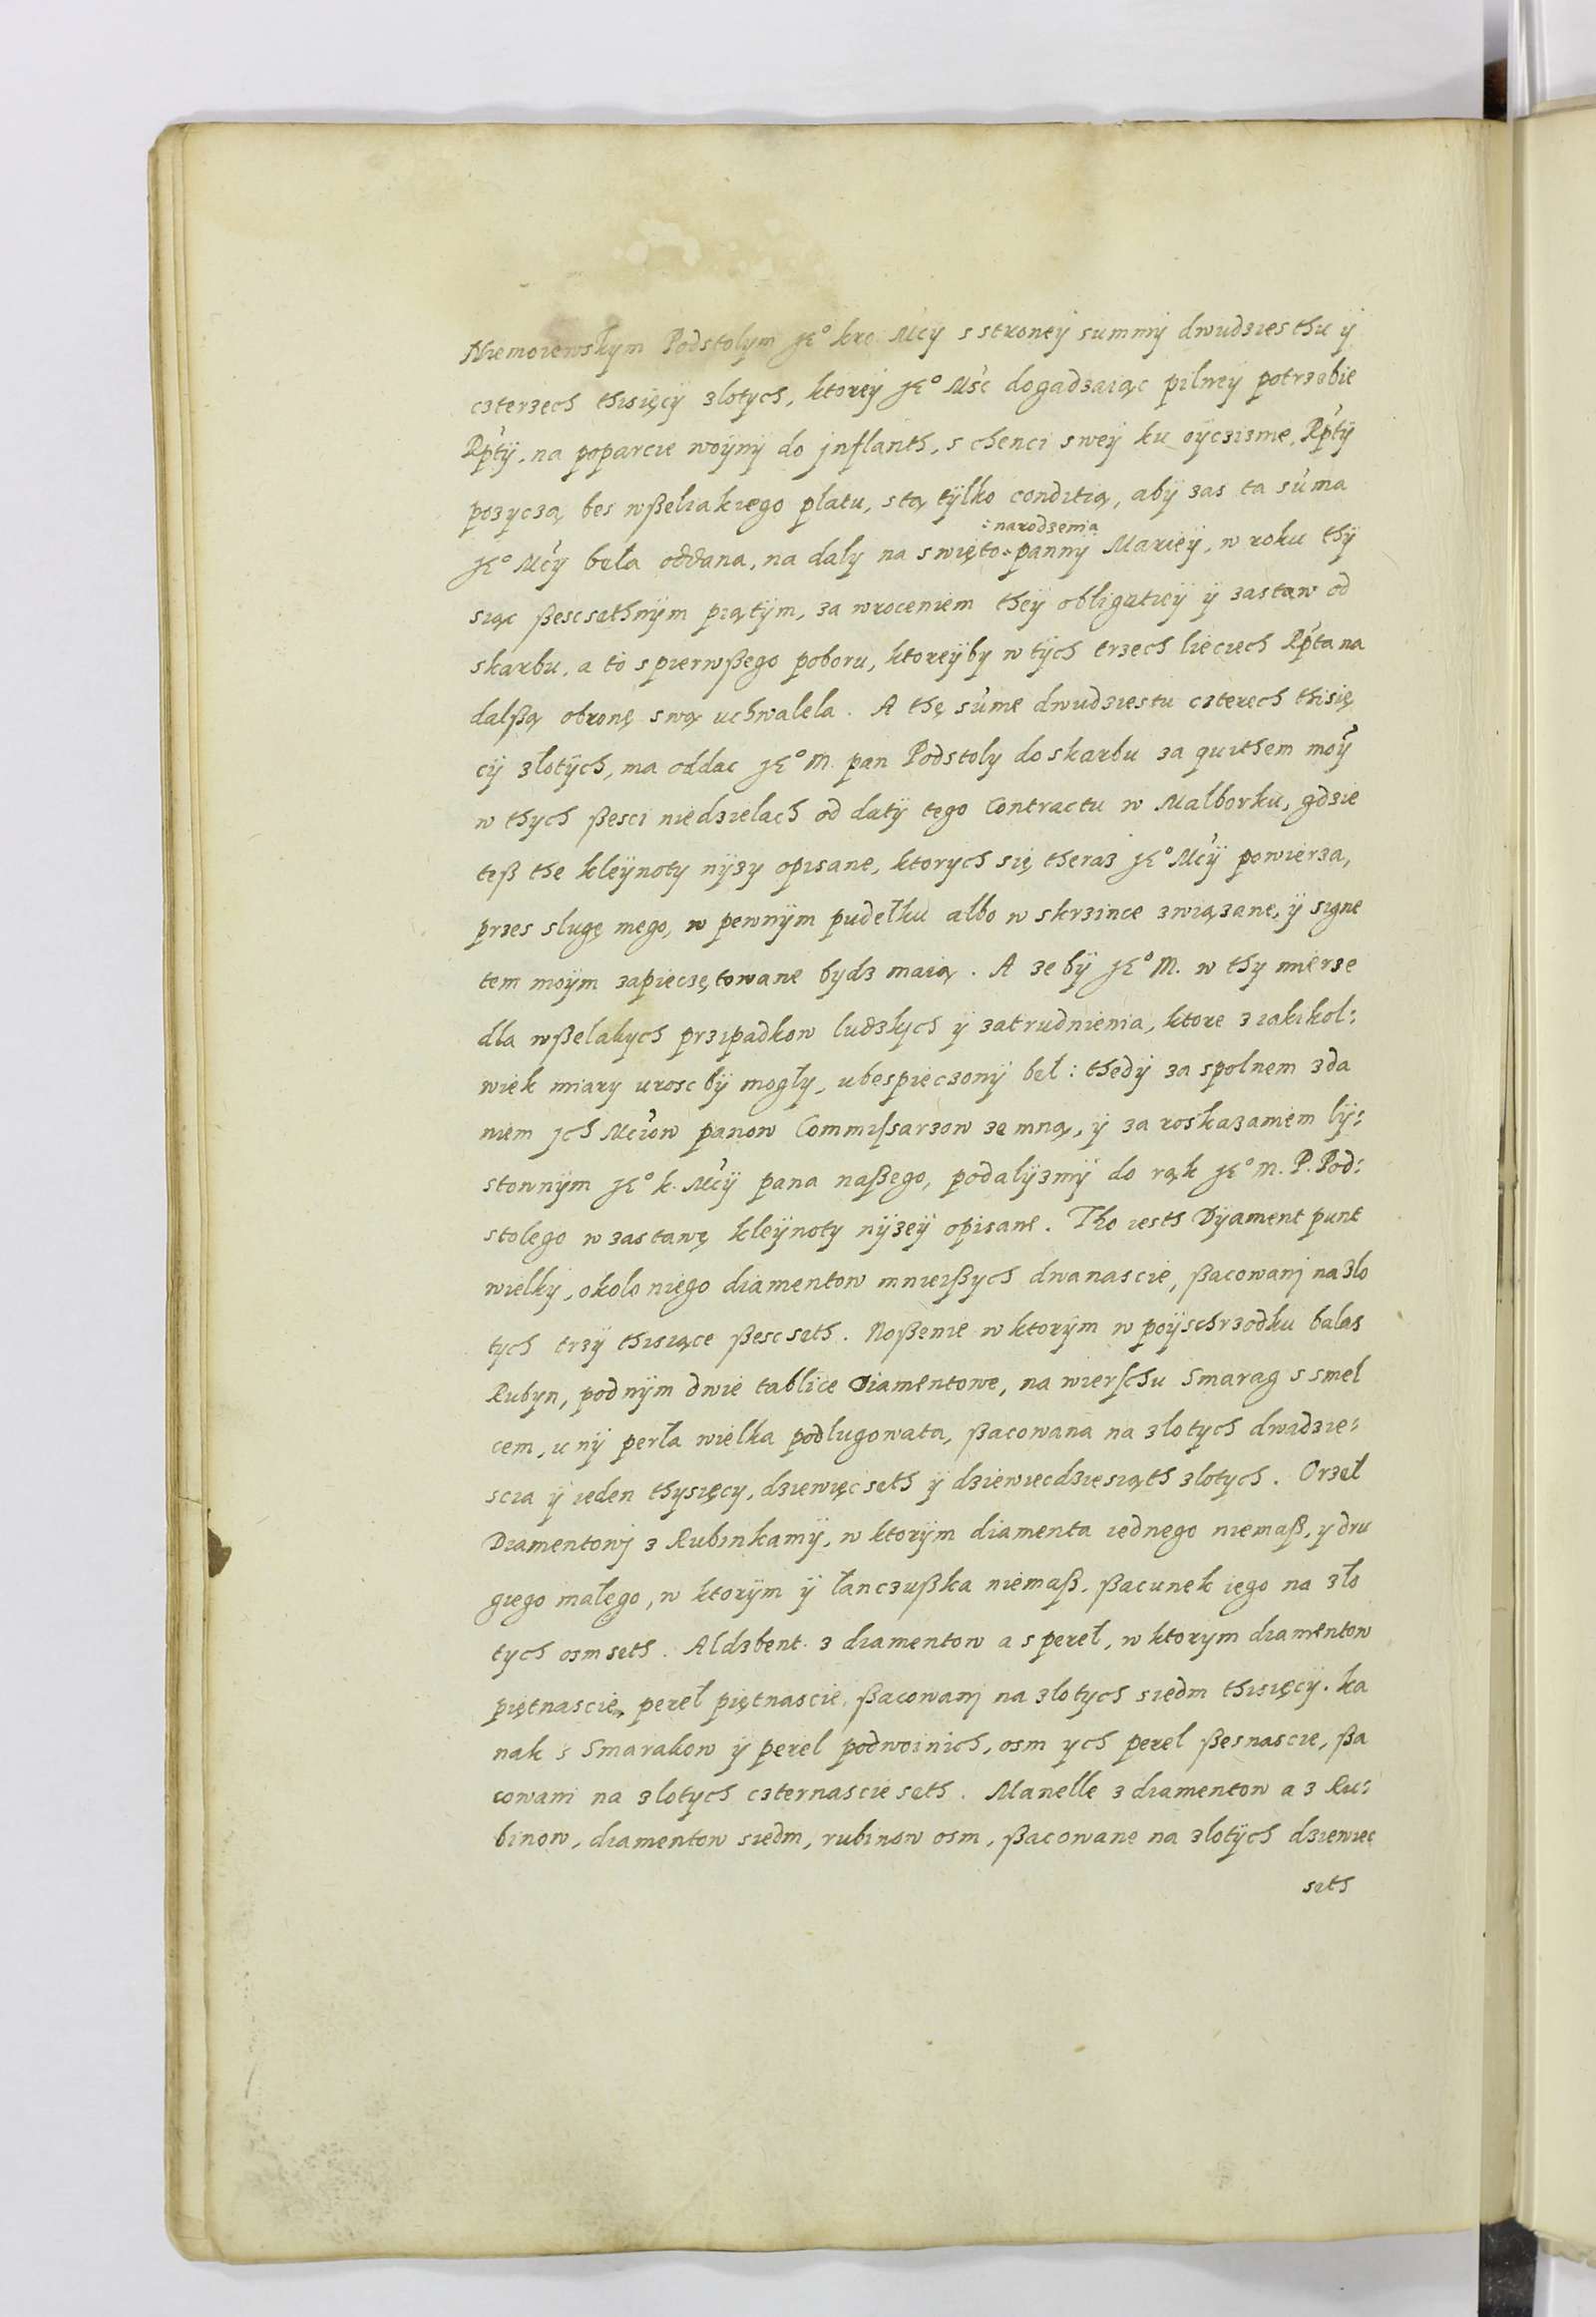 Niemoiewskym Podstolym JE° kro Mcÿ s stroneÿ summÿ dwudziesthu ÿ
czterzech thisięcÿ zlotych, ktoreÿ JE° Msc dogadzaiąc pilneÿ potrzebie
Rptÿ. na poparcie woÿnÿ do jnflanth, s chenci sweÿ ku oÿczizme, Rptÿ
pozyczą bes wßeliakiego platu, stą tÿlko conditią, abÿ zas ta suma
: narodzenia
JE° Mcÿ bela oddana, na daly na swięto panny Marieÿ, w roku thÿ
siąc ßescsethnÿm piątÿm, za wroceniem theÿ obligatieÿ ÿ zastaw od
skarbu, a to spierwßego poboru, ktoreÿby w tÿch trzech lieciech Rpta na
dalßą obronę swą uchwalela. A thę sume dwudziestu czterech thisię
cÿ złotÿch, ma oddac JE° M. pan Podstoly do skarbu za quithem moÿ
w thych ßesci niedzielach od datÿ tego Contractu w Malborku, gdzie
teß the kleÿnoty nÿzy opisane, ktorych się theraz JE° Mcÿ powierza,
przes slugę mego, w pewnÿm pudełku albo w skrzince związane, ÿ signe
tem moÿm zapieczętowane bydz maią. A ze bÿ JE° M. w thy mierze
dla wßelakych przipadkow ludzkych ÿ zatrudnienia, ktore z iakikol:
wiek miary urosc bÿ mogły, ubespieczonÿ beł: thedÿ za spolnem zda
niem jch Mciow panow Commissarzow ze mną, ÿ za roskazaniem lÿ:
stownÿm JE° k. Mcÿ pana naßego, podalÿzmÿ do rąk JE° M. P. Pod:
stolego w zastawę kleÿnoty nÿzeÿ opisane. Tho iesth Dÿament punt
wielkÿ, okolo niego diamentow mnieißych dwanascie, ßacowanj na zlo
tych trzÿ thisiące ßescseth. Noßenie w ktorÿm w poÿschrzodku balas
Rubyn, pod nÿm dwie tablice Diamentowe, na wierschu Smarag s smel
cem, u nÿ perła wielka podlugowata, ßacowana na zlotych dwadzie:
scia ÿ ieden thysięcy, dziewięcseth ÿ dziewiecdziesiąth zlotych. Orzeł
Diamentowj z Rubinkamÿ, w ktorÿm diamenta iednego niemaß, y dru
giego małego, w ktorÿm ÿ łanczußka niemaß. ßacunek iego na zło
tych osmseth. Aldzbent z diamentow a s pereł, w ktorym diamentow
piętnascie, pereł piętnascie, ßacowanj na zlotych siedm thisięcÿ. ka
nak s Smarakow ÿ perel podwoinich, osm ych perel ßesnascie, ßa
cowani na zlotych czternascie seth. Manelle z diamentow a z Ru:
binow, diamentow siedm, rubinow osm, ßacowane na zlotÿch dziewiec
seth